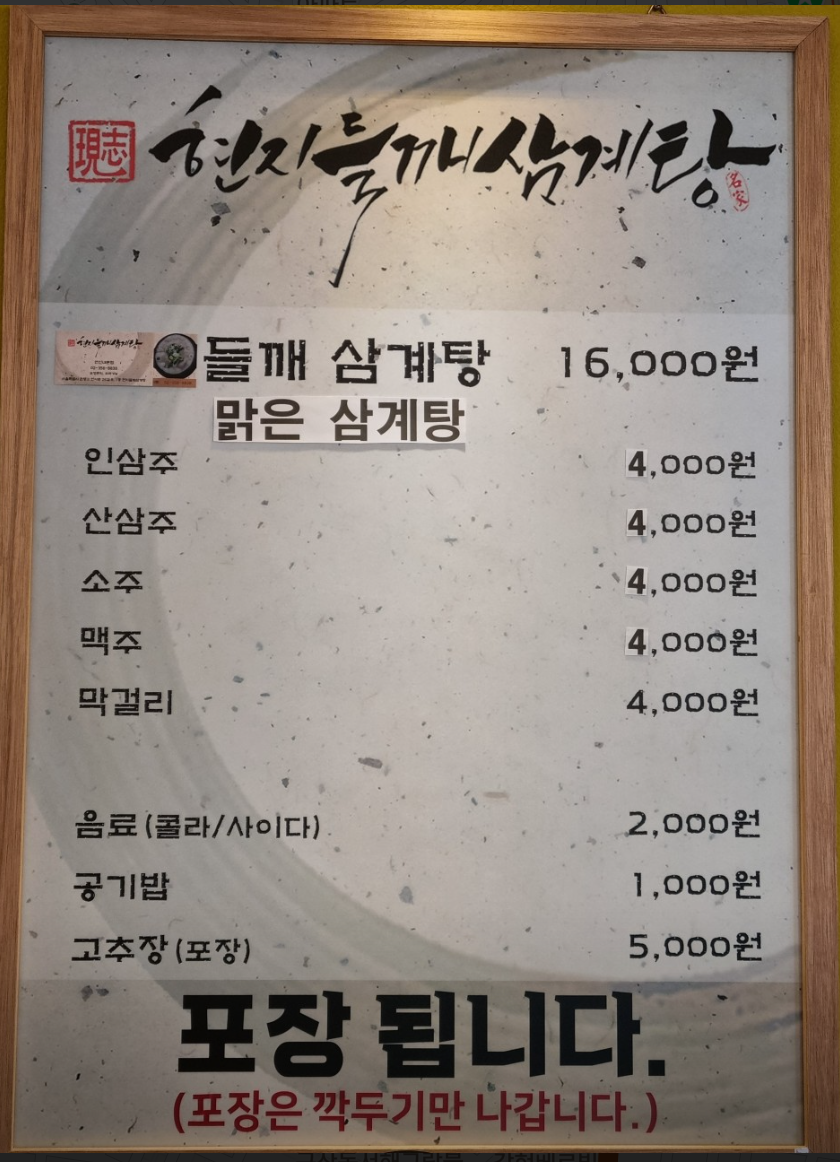 現志 현지들깨삼계탕 名家
현지들깨삼계탕
들깨 삼계탕 16,000원
맑은 삼계탕
인삼주 4,000원
산삼주 4,000원
소주 4,000원
맥주 4,000원
막걸리 4,000원
음료(콜라/사이다) 2,000원
공기밥 1,000원
고추장(포장) 5,000원
포장 됩니다.
(포장은 깍두기만 나갑니다.)